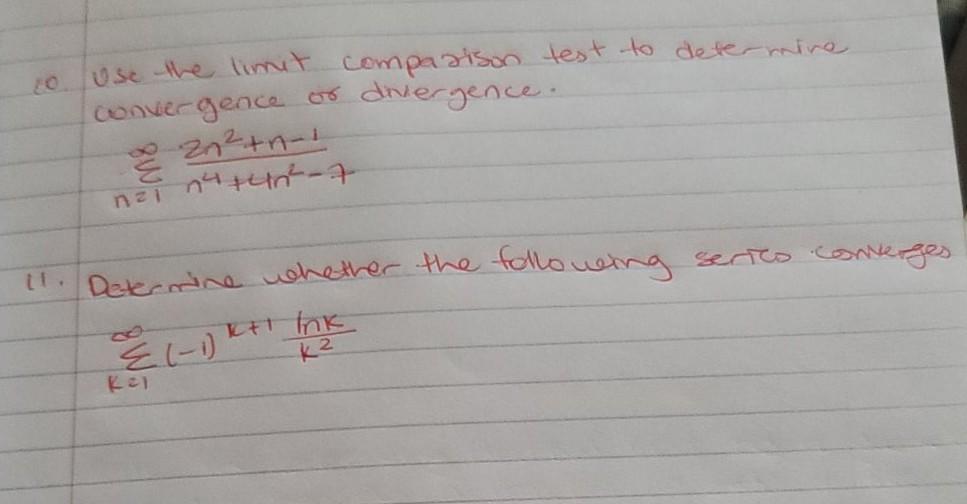 10. Use the limit comparison test to determine
convergence or divergence.
∞
Σ 2n²+n-1 / n⁴+4n²-7
n=1
11. Determine whether the following series converges
∞
Σ (-1)^(k+1) ln k / k²
k=1